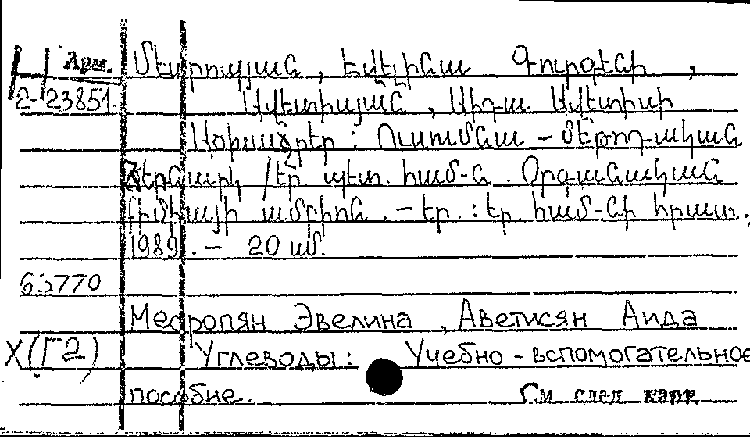 Арм. Մեսրոպյան, Էվելինա Գուրգենի,
2-23851 Ավետիսյան, Աիդա Ավետիսի
Ածխաջրեր: Ուսումնա-մեթոդական
ձեռնարկ /Եր. պետ. համ-ն. Օրգանական
քիմիայի ամբիոն. – Եր.: Եր. համ-նի հրատ.,
1989. – 20 սմ.
63770
Месропян Эвелина, Аветисян Аида
Х(Г2) Углеводы: Учебно-вспомогательное
пособие. См след карт